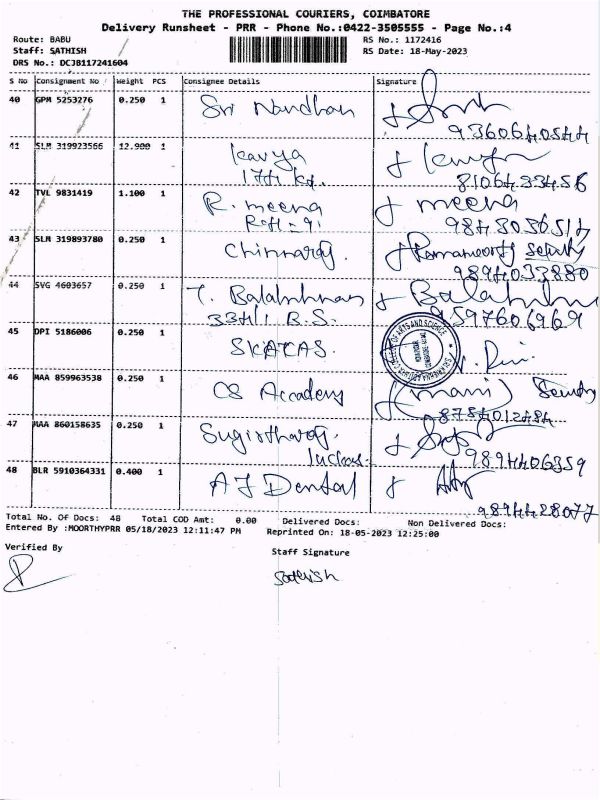 THE PROFESSIONAL COURIERS, COIMBATORE
Delivery Runsheet - PRR - Phone No.:0422-3505555 - Page No.:4
Route: BABU RS No.: 1172416
Staff: SATHISH RS Date: 18-May-2023
DRS No.: DCJB117241604
S No Consignment No Weight PCS Consignee Details Signature
40 GPM 5253276 0.250 1 Sri Nandhan
9360640544
41 SLM 319923566 12.900 1 Kavya
8106433456
42 TVL 9831419 1.100 1 R. meena meena
9843036514
43 SLM 319893780 0.250 1 Chinnaraj. Ramamoorthy Security
9894033880
44 SVG 4603657 0.250 1 T. Balakrishnan
334/1 B.S. 9597606969
45 DPI 5186006 0.250 1 SKACAS.
46 MAA 859963538 0.250 1 CS Accademy (mani) Security
8754012484
47 MAA 860158635 0.250 1 Sugirtharaj.
9894406359
48 BLR 5910364331 0.400 1 AJ Dental
9894428077
Total No. Of Docs: 48 Total COD Amt: 0.00 Delivered Docs: Non Delivered Docs:
Entered By :MOORTHYPRR 05/18/2023 12:11:47 PM Reprinted On: 18-05-2023 12:25:00
Verified By Staff Signature
Sathish